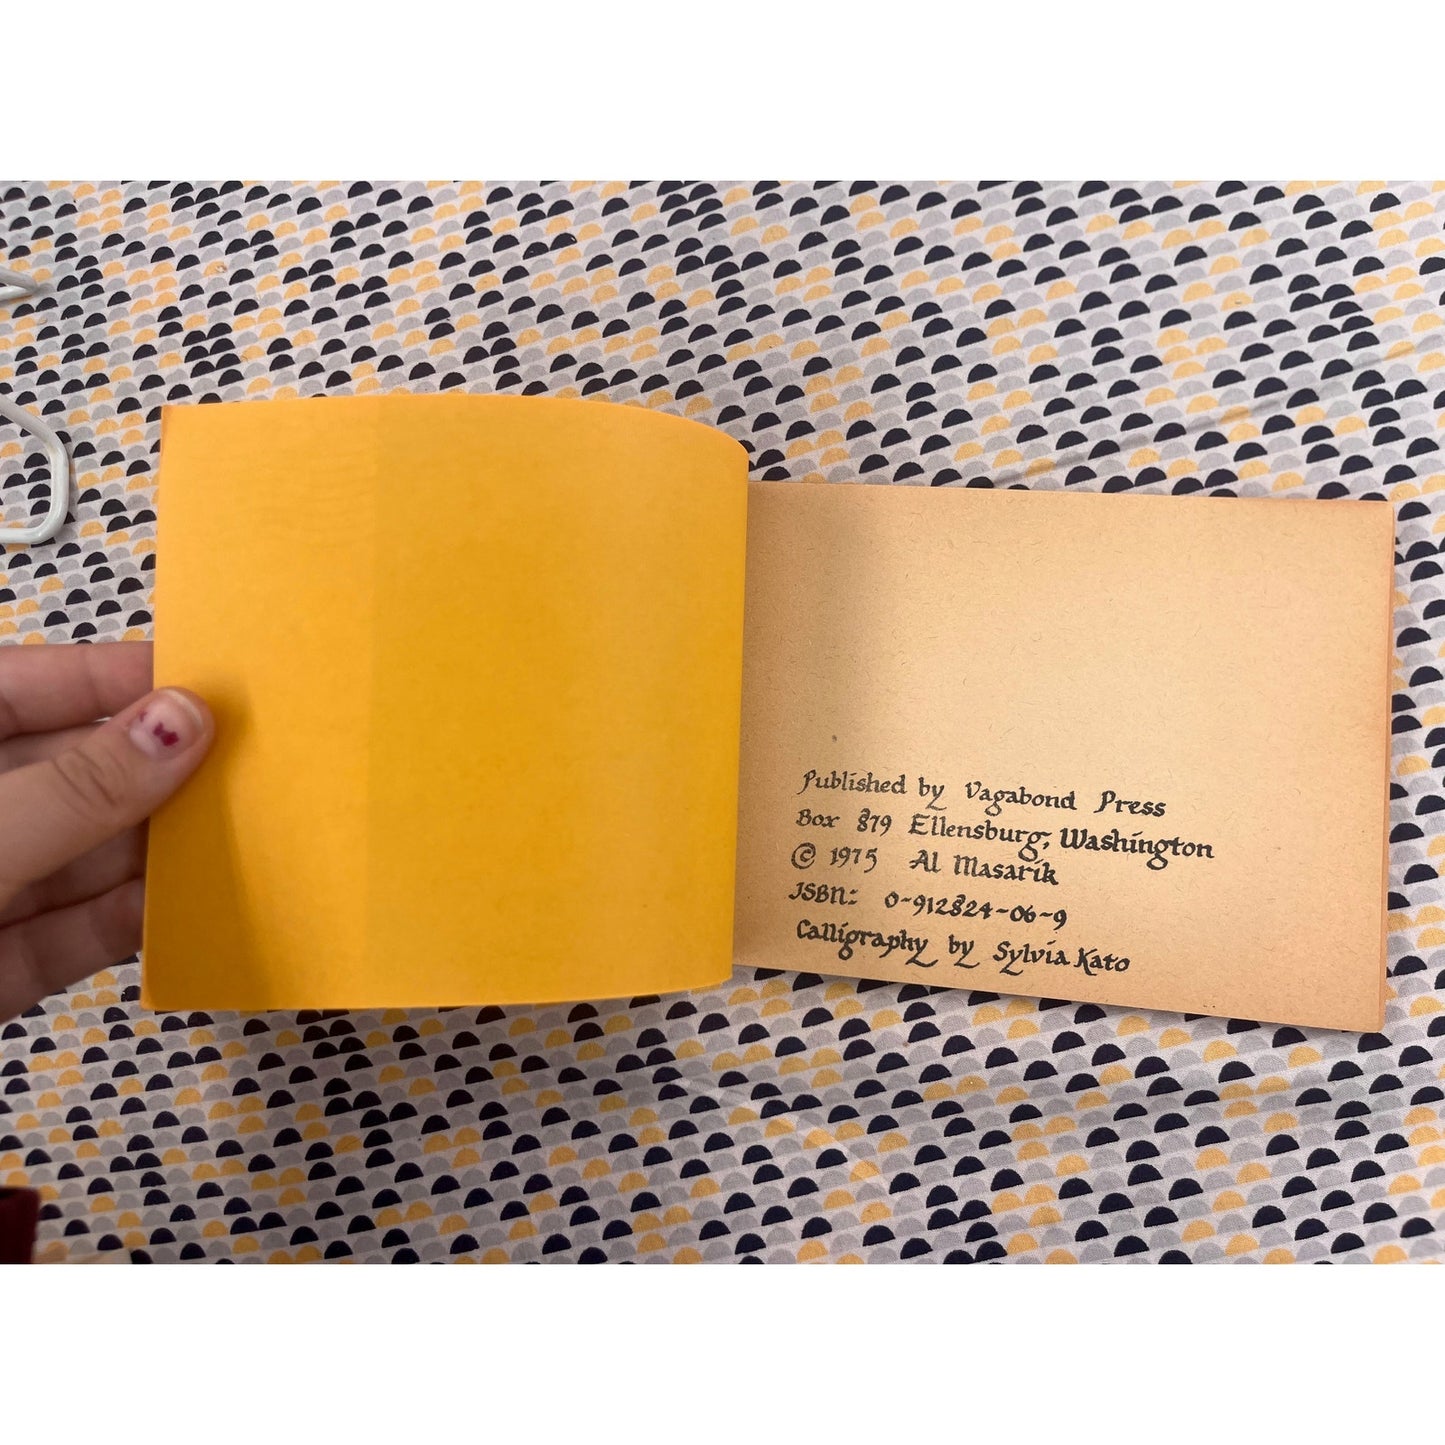 Published by Vagabond Press
Box 879 Ellensburg, Washington
© 1975 Al Masarik
ISBN: 0-912824-06-9
Calligraphy by Sylvia Kato